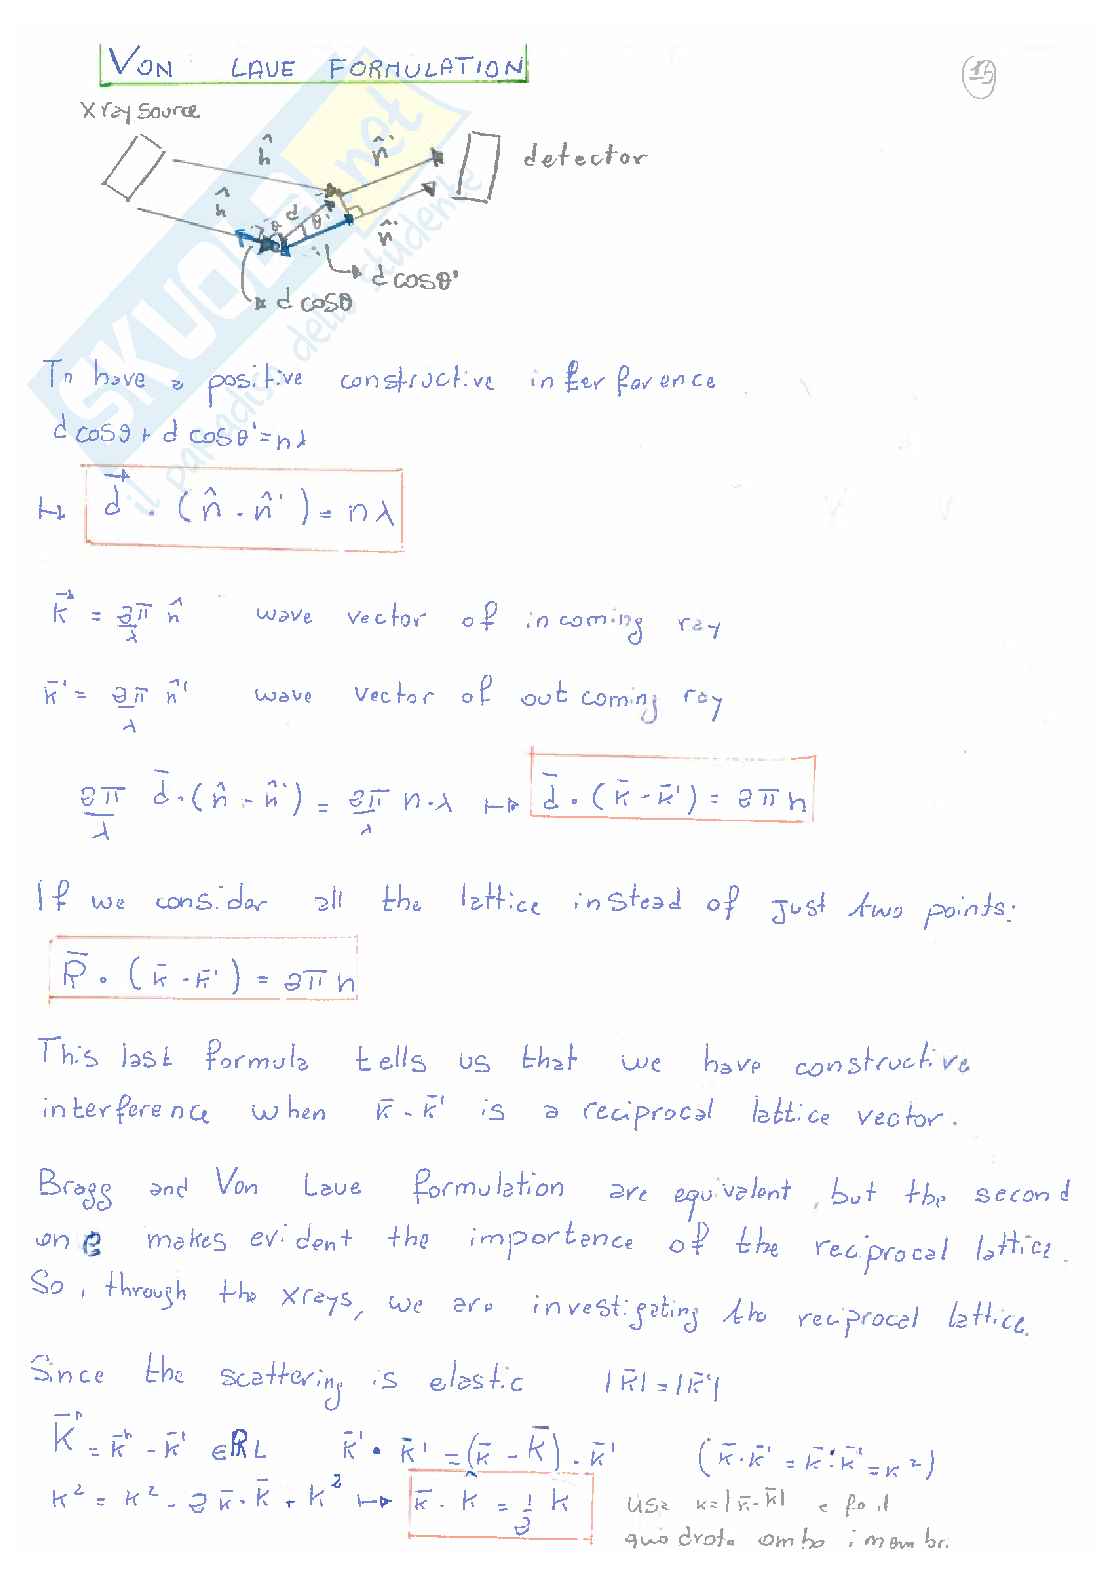 VON LAUE FORMULATION
15
X ray source
n̂ n̂' detector
n̂ d θ θ' n̂'
d cosθ'
d cosθ
To have a positive constructive interference
d cosθ + d cosθ' = nλ
↦ d⃗ · (n̂ - n̂') = nλ
k⃗ = 2π/λ n̂ wave vector of incoming ray
k̄' = 2π/λ n̂' wave vector of out coming ray
2π/λ d̄ · (n̂ - n̂') = 2π/λ n·λ ↦ d̄ · (k̄ - k̄') = 2πn
If we consider all the lattice instead of just two points:
R̄ · (k̄ - k̄') = 2πn
This last formula tells us that we have constructive
interference when k̄ - k̄' is a reciprocal lattice vector.
Bragg and Von Laue formulation are equivalent, but the second
one makes evident the importance of the reciprocal lattice.
So, through the xrays, we are investigating the reciprocal lattice.
Since the scattering is elastic |k̄| = |k̄'|
K⃗ = k⃗ - k̄' ∈ RL k̄' · k̄' = (k̄ - K̄) · k̄' (k̄·k̄' = k̄'·k̄' = k²)
k² = k² - 2 k̄·K̄ + K² ↦ k̄ · K̂ = 1/2 K usa k = |k̄ - K̄| e fa il
quadrato ambo i membri
SKUOLA.net
il paradiso dello studente